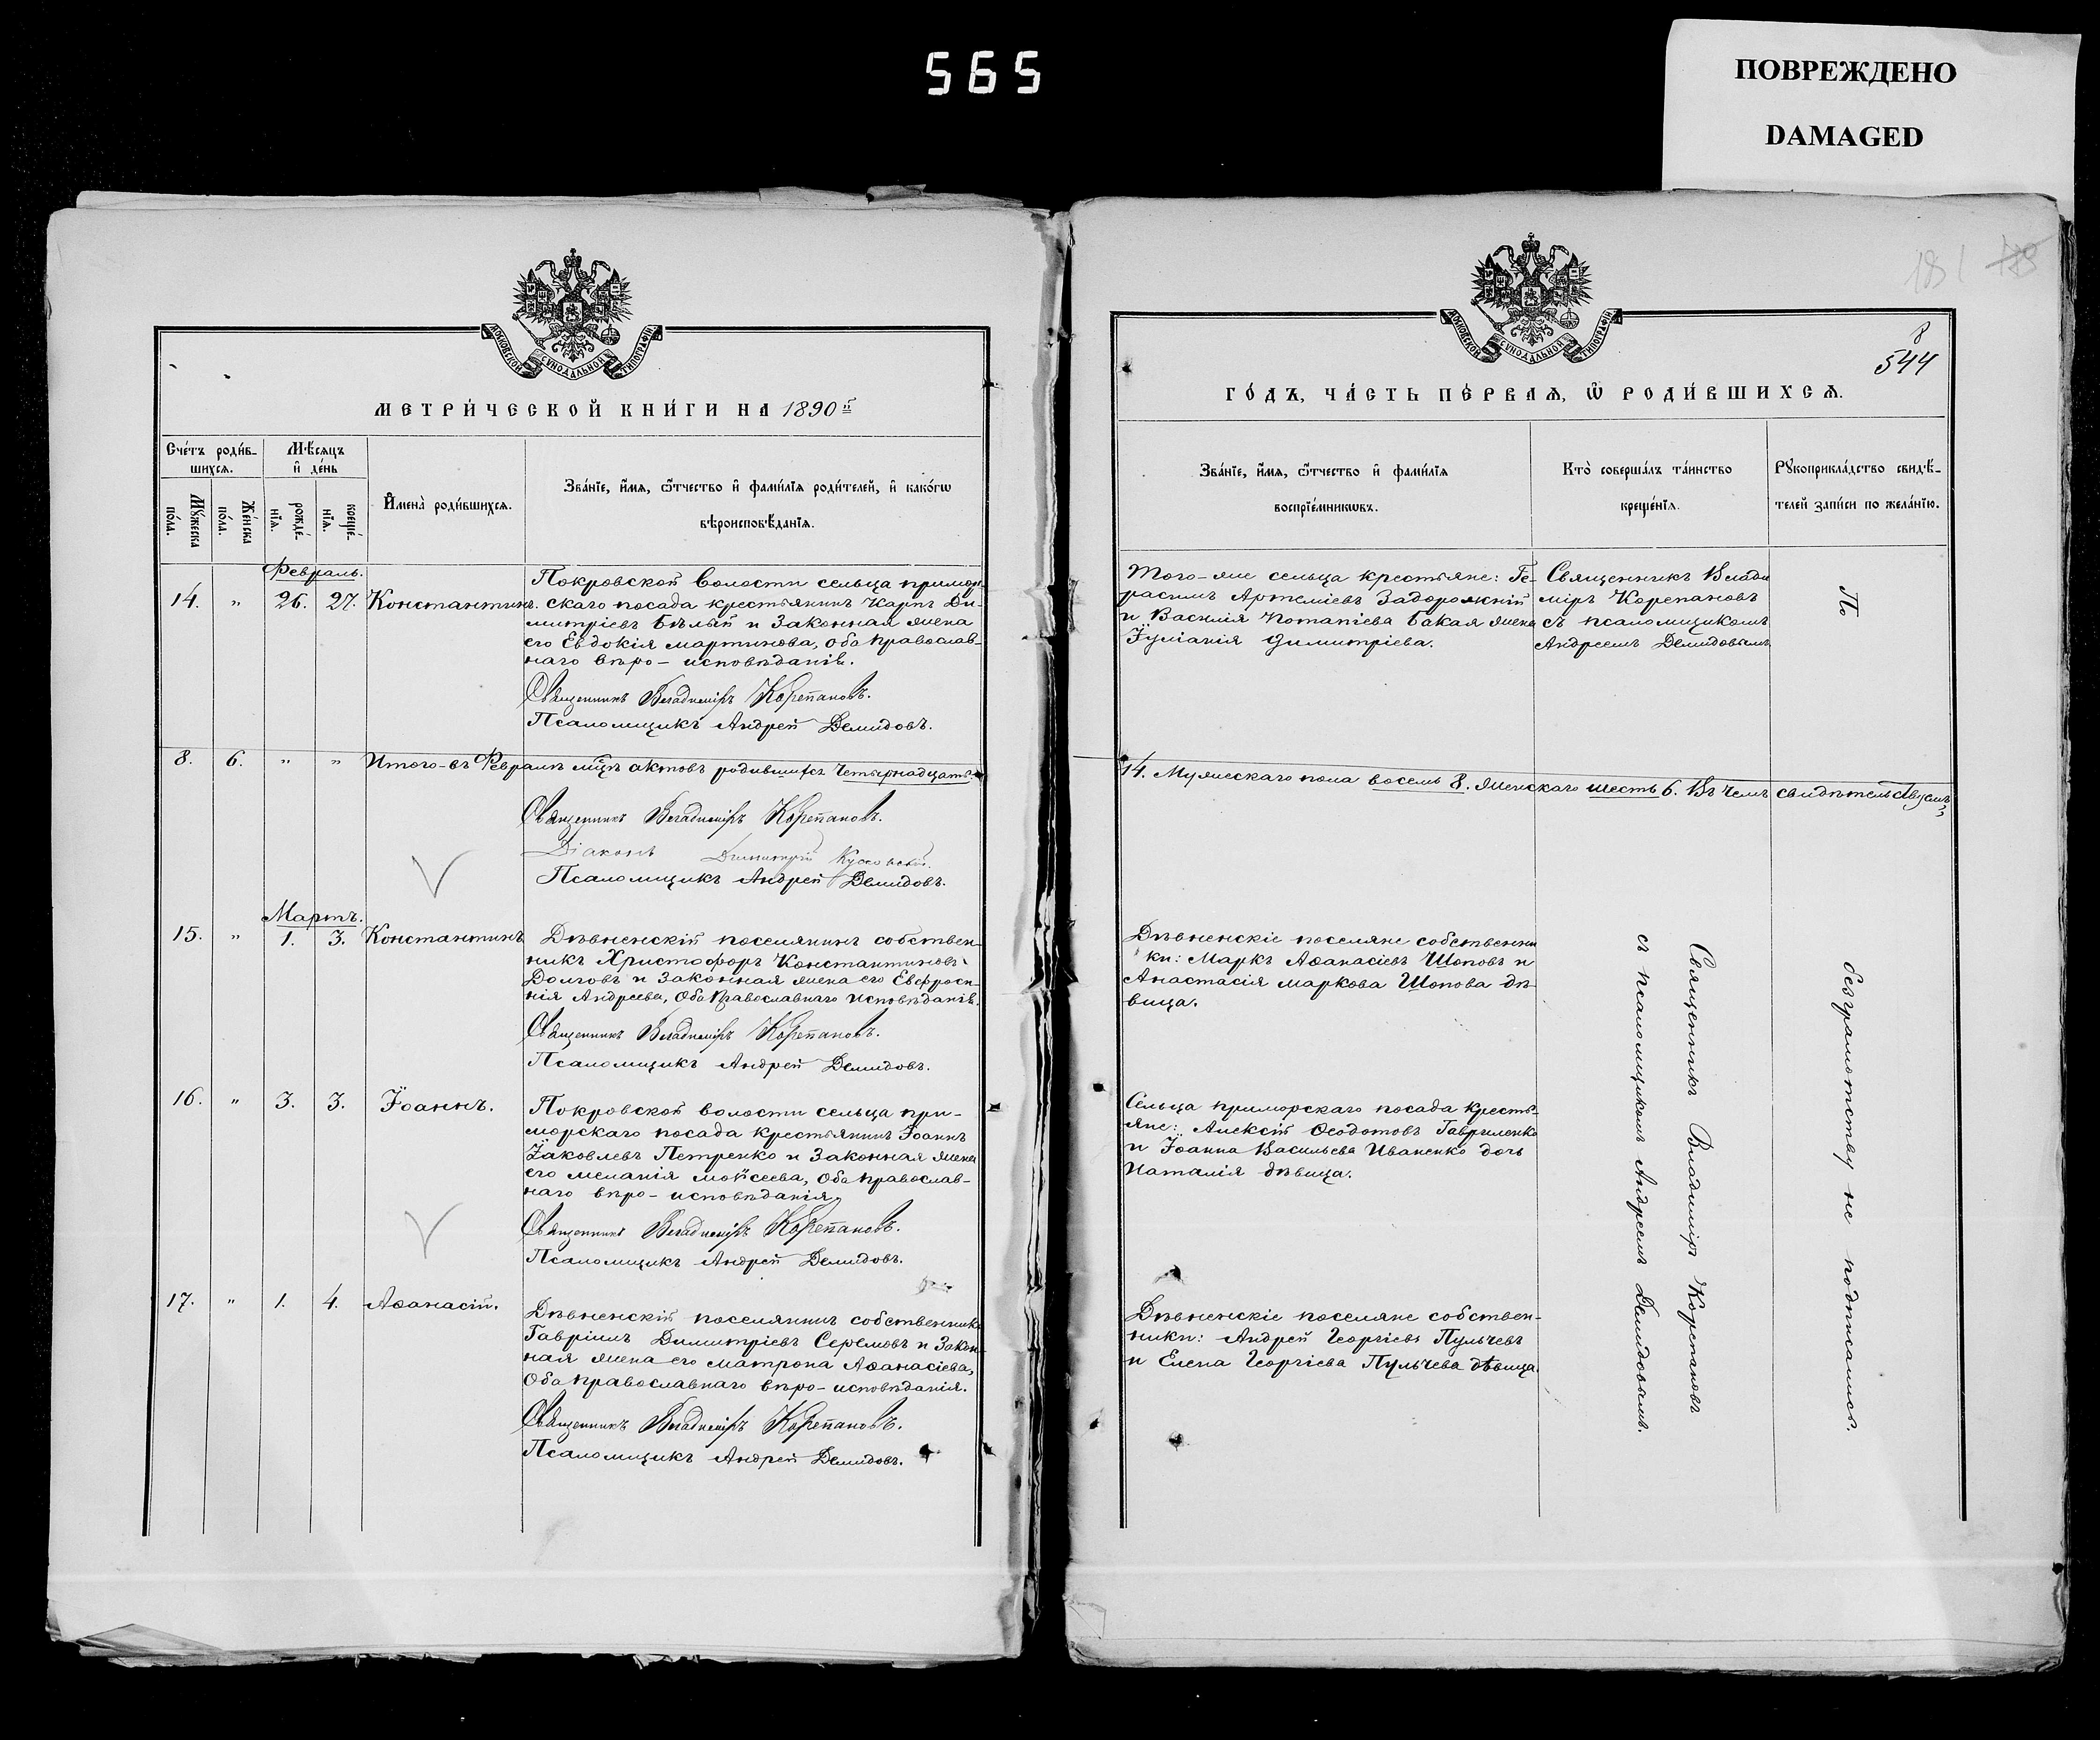 565
ПОВРЕЖДЕНО
DAMAGED
МОСКОВСКОЙ СУНОДАЛЬНОЙ ТИПОГРАФІИ
МЕТРИ́ЧЕСКОЙ КНИ́ГИ НА 1890 й
Счетъ роди́в-
шихся.
Мѣсяцъ
и҆ де́нь
Мꙋ́жеска
по́ла.
Же́нска
по́ла.
рожде́-
нїѧ.
креще́-
нїѧ.
И҆мена̀ роди́вшихсѧ.
Зва́нїе, и҆́мѧ, ѻ҆́тчество и҆ фами́лїѧ роди́телей, и҆ како́гѡ
вѣроисповѣ́данїѧ.
Февраль.
14. " 26. 27. Константинъ.
Покровской волости сельца примор-
скаго посада крестьянинъ Карпъ Ди-
митріевъ Бѣлый и законная жена
его Евдокія Мартинова, оба православ-
наго вѣро-исповѣданія.
Священникъ Владиміръ Корепановъ.
Псаломщикъ Андрей Демидовъ.
8. 6. " " Итого-въ Февралѣ мцѣ актовъ родившихся четырнадцать
Священникъ Владиміръ Корепановъ.
Діаконъ Димитрій
Псаломщикъ Андрей Демидовъ.
Мартъ.
15. " 1. 3. Константинъ
Дѣвненскій поселянинъ собствен-
никъ Христофоръ Константиновъ
Долговъ и законная жена его Евфроси-
нія Андреева, оба православнаго исповѣданія.
Священникъ Владиміръ Корепановъ.
Псаломщикъ Андрей Демидовъ.
16. " 3. 3. Іоаннъ.
Покровской волости сельца при-
морскаго посада крестьянинъ Іоаннъ
Іаковлевъ Петренко и законная жена
его Меланія Моѵсеева, оба православ-
наго вѣро-исповѣданія,
Священникъ Владиміръ Корепановъ.
Псаломщикъ Андрей Демидовъ.
17. " 1. 4. Аѳанасій.
Дѣвненскій поселянинъ собственникъ
Гавріилъ Димитріевъ Серемовъ и закон-
ная жена его Матрона Аѳанасіева,
оба православнаго вѣро-исповѣданія.
Священникъ Владиміръ Корепановъ.
Псаломщикъ Андрей Демидовъ.
181
8
544
МОСКОВСКОЙ СУНОДАЛЬНОЙ ТИПОГРАФІИ
ГО́ДЪ, ЧА́СТЬ ПЕ́РВАѦ, Ѡ҆ РОДИ́ВШИХСѦ.
Зва́нїе, и҆́мѧ, ѻ҆́тчество и҆ фами́лїѧ
воспрїе́мникѡвъ.
Кто̀ соверша́лъ та́инство
креще́нїѧ.
Рꙋкоприкла́дство свидѣ́-
телей за́писи по жела́нїю.
Того-же сельца крестьяне: Ге-
расимъ Артеміевъ Задорожній
и Василія Потапіева Бакая жена
Іуліанія Димитріева.
Священникъ Влади
міръ Корепановъ
съ псаломщикомъ
Андреемъ Демидовымъ
По
14. Мужескаго пола восемь 8. женскаго шесть 6. Въ чемъ свидѣтельствуемъ,
Дѣвненскіе поселяне собственни
ки: Маркъ Аѳанасіевъ Шоповъ и
Анастасія Маркова Шопова дѣ-
вица.
Сельца приморскаго посада кресть-
яне: Алексій Ѳеодотовъ Гавриленко
и Іоанна Васильева Иваненко дочь
Наталія дѣвица.
Дѣвненскіе поселяне собствен-
ники: Андрей Георгіевъ Пульчевъ
и Елена Георгіева Пульчева дѣвица.
Священникъ Владиміръ Корепановъ
съ псаломщикомъ Андреемъ Демидовымъ.
безграмотству не подписались.